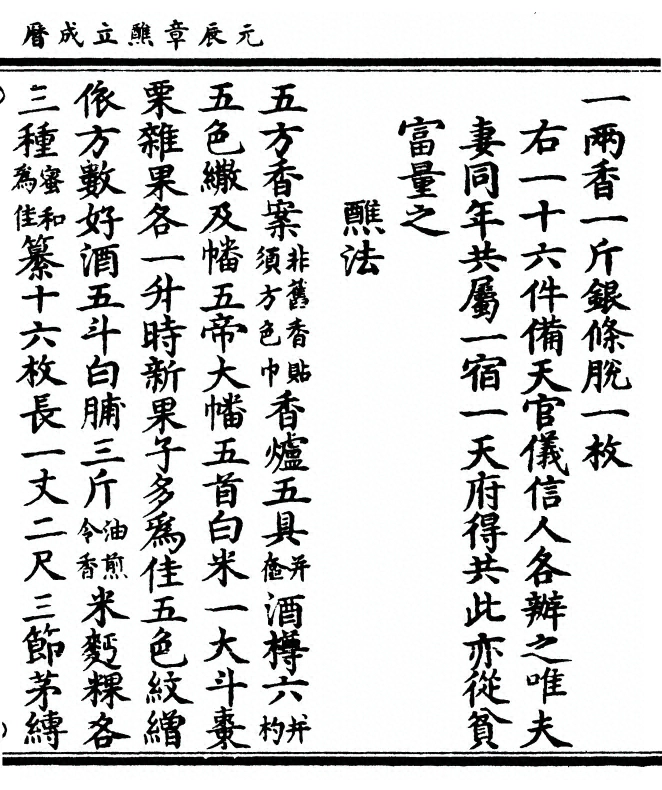 元辰章醮立成曆
一兩香一斤銀條脫一枚
右一十六件備天官儀信人各辦之唯夫
妻同年共屬一宿一天府得共此亦從貧
富量之
醮法
五方香案非舊香貼須方色巾香爐五具并酒樽六并杓
五色繖及幡五帝大幡五首白米一大斗棗
栗雜果各一升時新果子多爲佳五色紋繒
依方數好酒五斗白脯三斤油煎令香米麪粿各
三種蜜和爲佳纂十六枚長一丈二尺三節茅縛